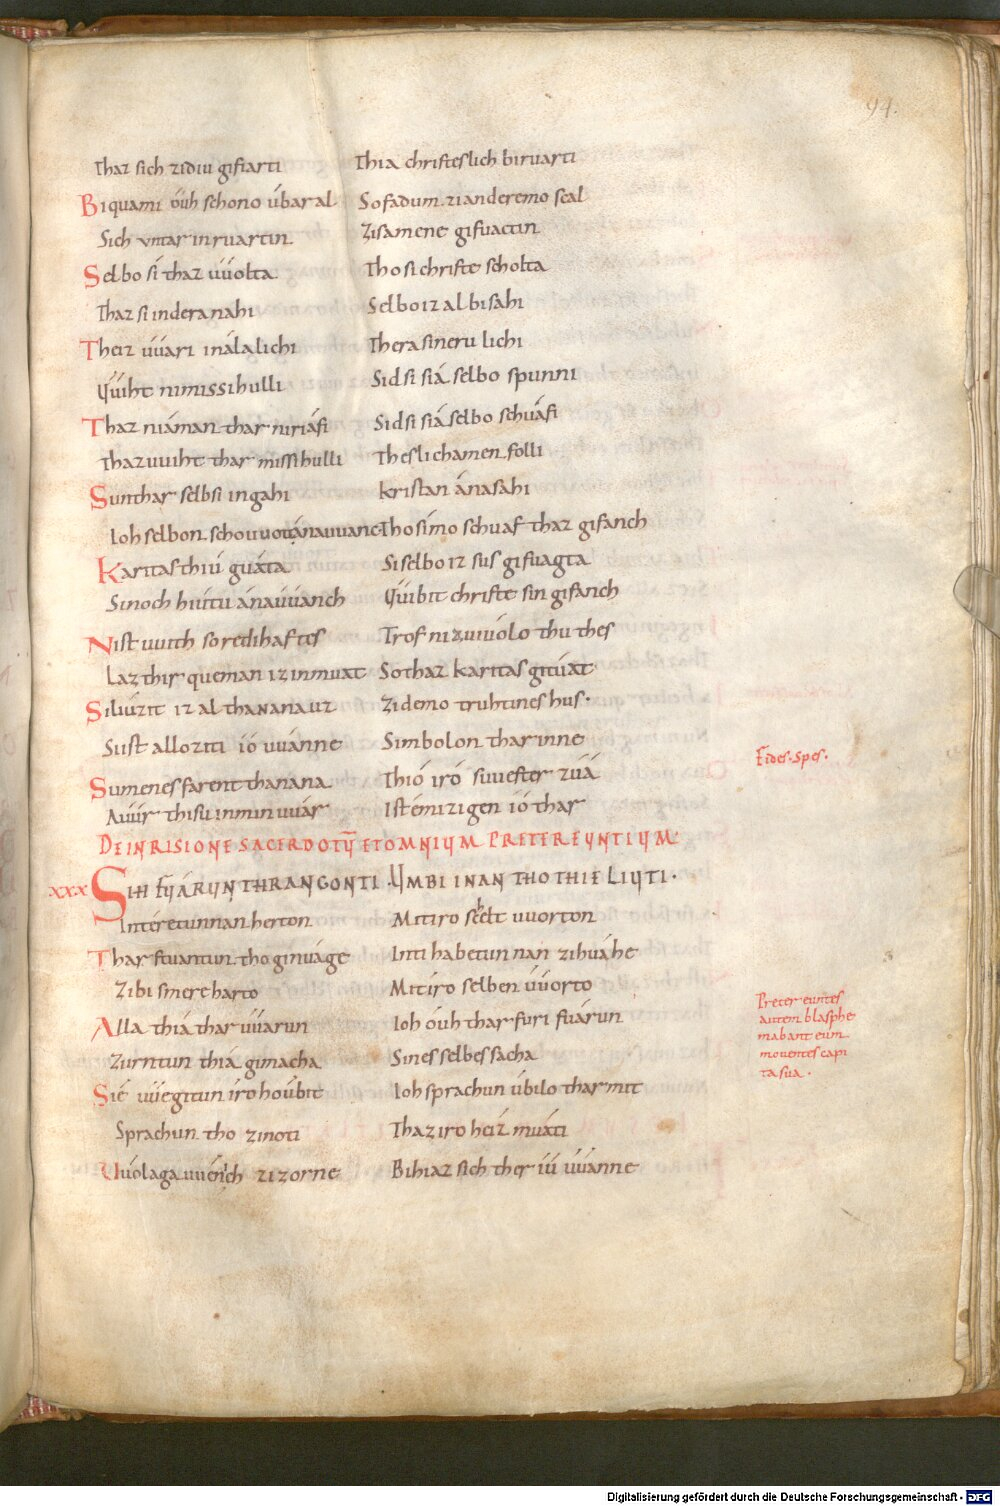 94.
Thaz sich zidiu gifiarti Thia christes lich biruarti
Biquami óuh schono úbar al So fadum zi anderemo scal
Sich untar in ruartin Zisamene gifuactin
Selbo si thaz uuolta Tho si christe scholta
Thaz si indera nahi Selbo iz al bisahi
Theiz uuari in álalichi Thera sineru lichi
Uuiht ni missihulli Sid si siá selbo spunni
Thaz niáman thar niriáfi Sid si siá selbo schuáfi
Thaz uuiht thar missihulli Thes lichamen folli
Sunthar selb si in gahi Kristan ánasahi
Ioh selbon schouuoti ánauuanc Tho sí mo schuaf thaz gifanch
Karitas thiu guáta Si selbo iz sus gifuagta
Si noch hiutu ánauuanch Uuibit christe sin gifanch
Nist uuith so redihaftes Trof ni zuiuolo thu thes
Laz thir queman iz in muat So thaz karitas gituat
Si liuzit iz al thanana uz Zi demo truhtines hus.
Si ist allo ziti ió uuánne Simbolon thar inne
Sume nes farent thanana Thió iro suuester zuá
Auúr thisu in min uuár Ist émizigen ió thar
Fides. spes.
DE INRISIONE SACERDOTŪ ET OMNIUM PRETEREUNTIUM.
XXX SIH FUÁRUN THRANGONTI. UMBI INAN THO THIE LIUTI.
Int éretun nan herton Mit iro scelt uuorton
Thar stuantun tho ginuáge Inti habetun nan zi huáhe
Zi bismere harto Mit íro selben uuorto
Preter euntes
autem blasphe
mabant eum
moventes capi
ta sua.
Alla thiá thar uuarun Ioh óuh thar furi fuárun
Zurntun thiá gimacha Sines selbes sacha
Sié uuegitun iro houbit Ioh sprachun úbilo thar mit
Sprachun tho zi noti Thaz iro heiz muáti
Uuolaga uuénich zi zorne Bihiaz sich ther iu uuanne
Digitalisierung gefördert durch die Deutsche Forschungsgemeinschaft - DFG